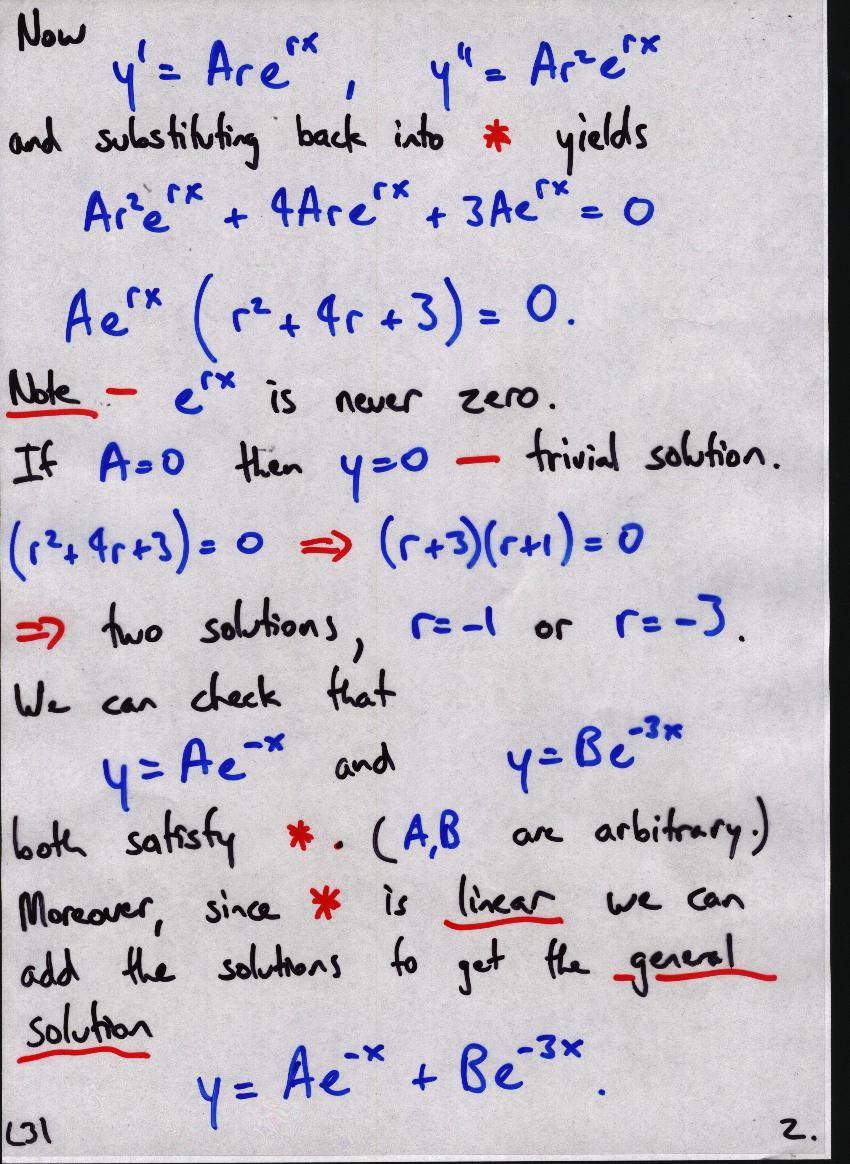 Now
y' = Are^{rx}, y'' = Ar²e^{rx}
and substituting back into * yields
Ar²e^{rx} + 4Are^{rx} + 3Ae^{rx} = 0
Ae^{rx} (r² + 4r + 3) = 0.
Note – e^{rx} is never zero.
If A=0 then y=0 – trivial solution.
(r²+4r+3) = 0 ⇒ (r+3)(r+1) = 0
⇒ two solutions, r=-1 or r=-3.
We can check that
y = Ae^{-x} and y = Be^{-3x}
both satisfy *. (A,B are arbitrary.)
Moreover, since * is linear we can
add the solutions to get the general
solution
y = Ae^{-x} + Be^{-3x}.
L31 2.